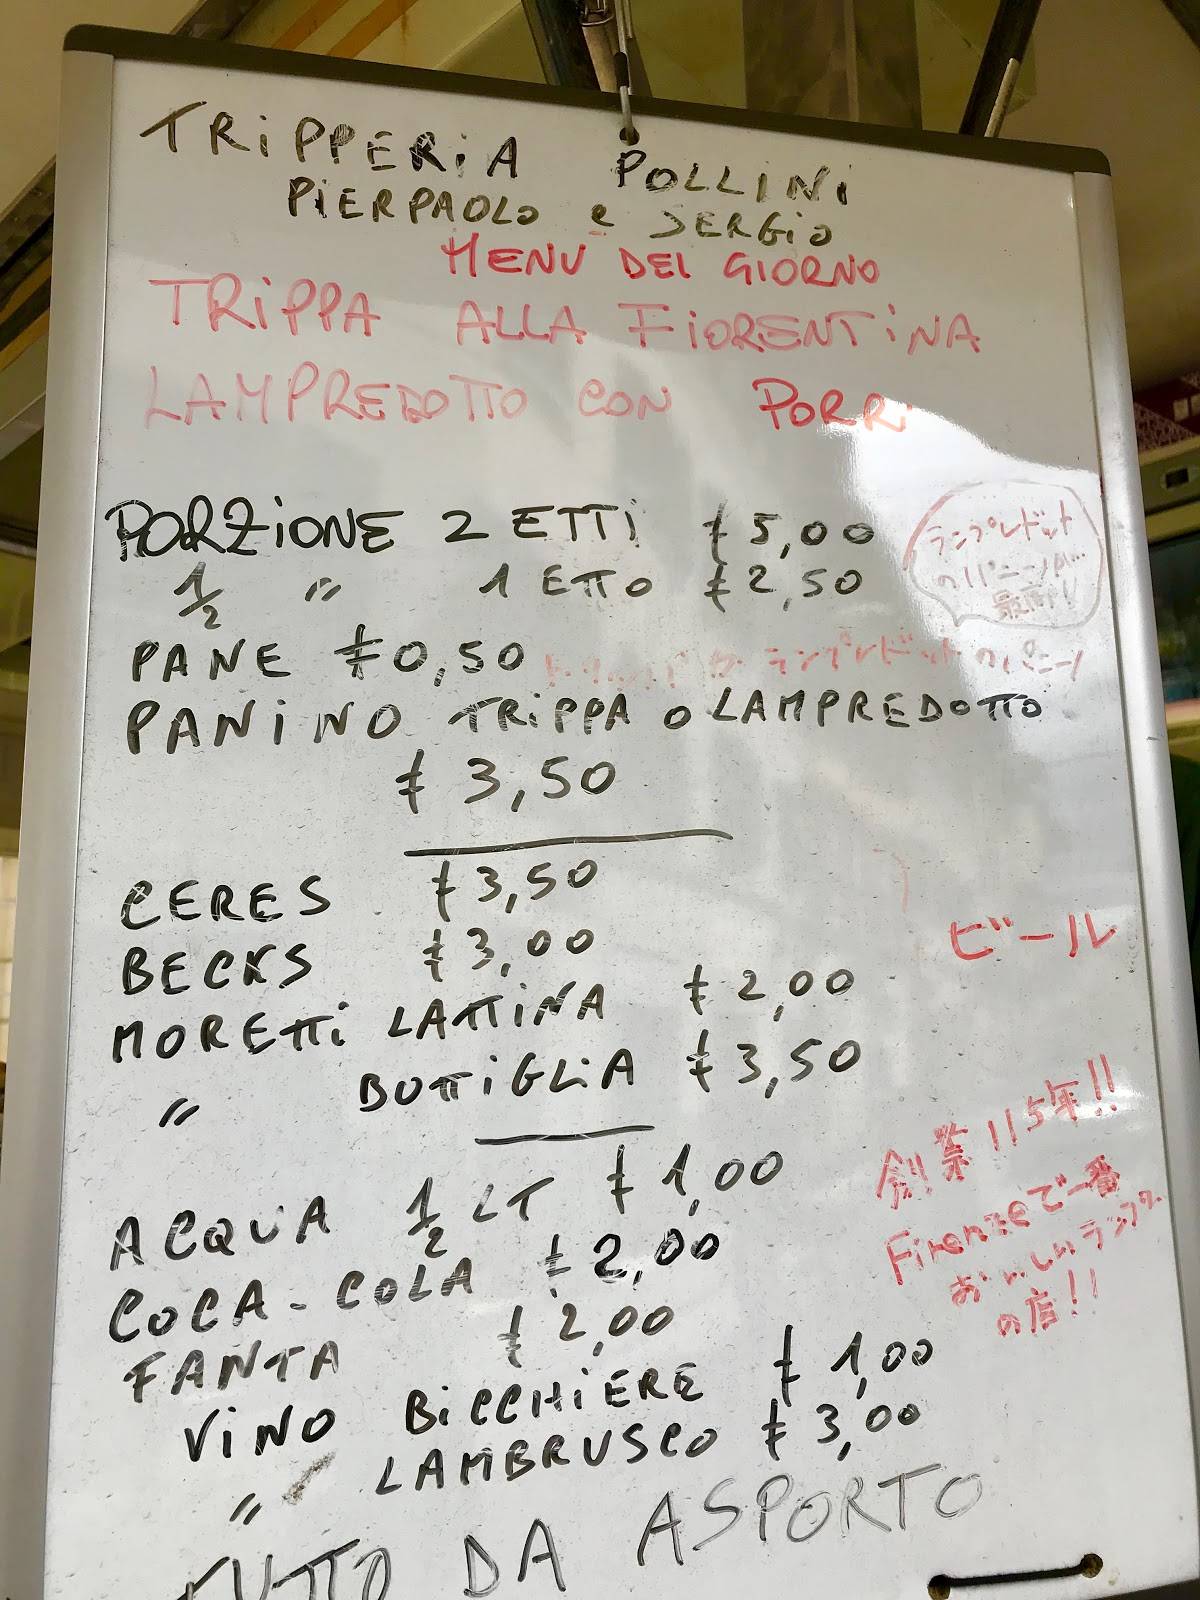 TRiPPERiA POLLiNi
PiERPAOLO e SERGiO
MENU DEL GIORNO
TRiPPA ALLA FiORENTiNA
LAMPREDOTTO CON PORRi
PORZiONE 2 ETTi € 5,00
1/2 〃 1 ETTO € 2,50
ランプレドット
のパニーノが…
最高!!
PANE € 0,50
ランプレドットのパニーノ
PANiNO TRiPPA O LAMPREDOTTO
€ 3,50
CERES € 3,50
BECKS € 3,00
ビール
MORETTi LATTiNA € 2,00
〃 BOTTiGLiA € 3,50
ACQUA 1/2 LT € 1,00
COCA-COLA € 2,00
FANTA € 2,00
創業115年!!
Firenzeで一番
おいしい
の店!!
ViNO BiCCHiERE € 1,00
〃 LAMBRUSCO € 3,00
TUTTO DA ASPORTO